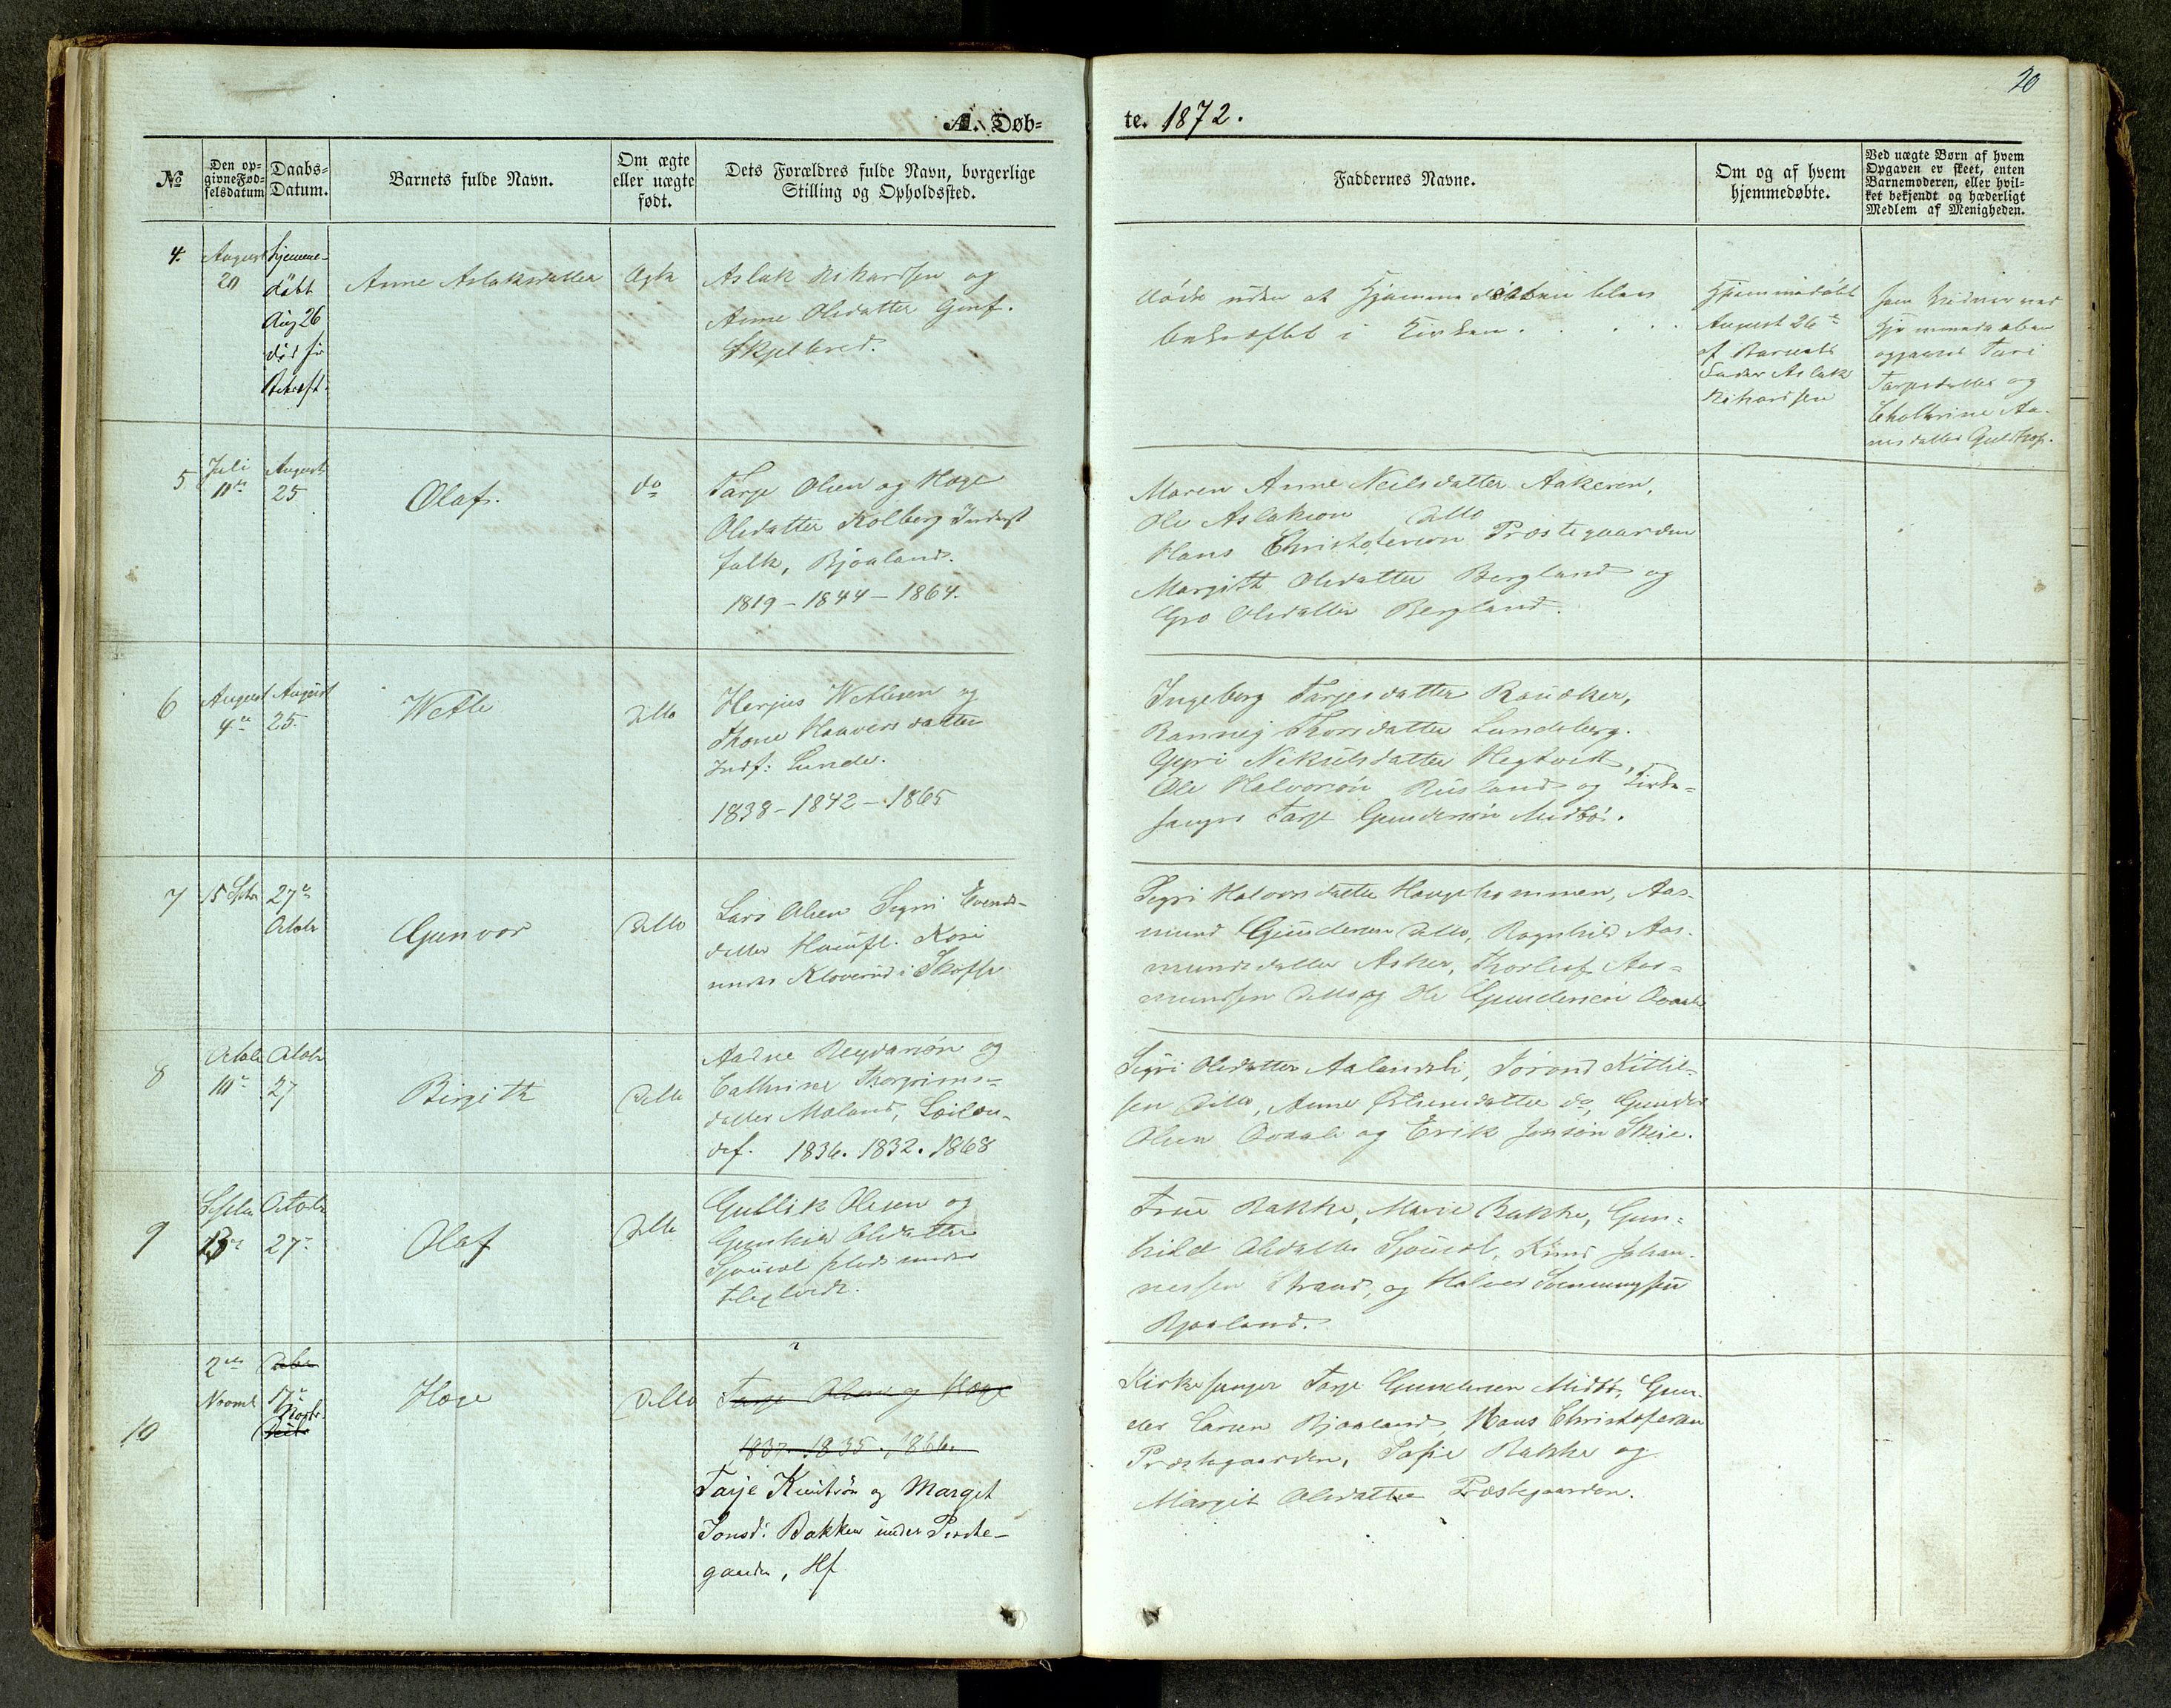 20
A. Døb=
te. 1872.
№
Den op=
givne Fød=
selsdatum
Daabs=
Datum.
Barnets fulde Navn.
Om ægte
eller uægte
født.
Dets Forældres fulde Navn, borgerlige
Stilling og Opholdssted.
Faddernes Navne.
Om og af hvem
hjemmedøbte.
Ved uægte Børn af hvem
Opgaven er skeet, enten
Barnemoderen, eller hvil=
ket bekjendt og hæderligt
Medlem af Menigheden.
4.
August
20
hjemme-
døbt
Aug 26
død før
Bekræft.
Anne Aslaksdatter
Ægte
Aslak Rikardsen og
Anne Olsdatter
Skjelbred.
døde uden at Hjemmedaaben blev
bekræftet i Kirken.
Hjemmedøbt
August 26
af Barnets
Fader Aslak
Rikardsen
som Vidner ved
Hjemmedaaben
opgaves Turi
Tarjesdatter og
Chathrine Aa-
nesdatter
5
Juli
10de
August
25
Olaf.
do
Tarje Olsen og Hæge
Olsdatter Kolberg Inderst
folk, Bjaaland.
1819 - 1844 - 1864.
Maren Anne Neilsdatter Aakeren,
Ole Aslakson ditto
Hans Christoferson Præstegaarden
Margith Olsdatter Bergland og
Gro Olsdatter Bergland.
6
August
4de
August
25
Wetle
ditto
Herjus Wetlesen og
Thone Haaversdatter
Indf: Lunde.
1838 - 1842 - 1865
Ingeborg Tarjesdatter
Rannei Thorsdatter Lundeberg.
Nikulsdatter Hegtveit,
Ole Halvorsøn Rusland og Kirke=
sanger Tarje Gundersøn Midbø.
7
15 Septr
27de
Octobr
Gunvor
ditto
Lars Olsen Sigri Evends-
datter
under Kloverud i
Sigri Halvorsdatter Haugehommen, Aas-
mund Gundersen ditto, Ragnhild Aas-
mundsdatter Asker, Thorleif Aas=
mundsen ditto og Ole Gundersen
8
Octobr
10de
Octobr
27
Birgith
ditto
Aadne Reydarsøn og
Cathrine Thorgrims=
datter Moland,
1836. 1832. 1868
Sigri Olsdatter Aalandsli, Tørond Kittil-
sen ditto, Anne Østensdatter do, Gunder
Olsen og Erik Jonsøn Skeie.
9
Septbr
Octobr
27
Olaf
ditto
Gullik Olesen og
Gunhild Olsdatter
plads under
Frue Bakke, Marie Bakke, Gun=
hild Olsdatter Knud Johan-
nessen Strand, og Halvor Svenningsen
Bjaaland.
10
2den
Novmbr
17de
Novbr.
Hæge
ditto
Tarje Olsen og Hæge
1837. 1835. 1866.
Tarje Knutsøn og Marget
Jonsd: Bakken under Preste-
gaarden, Hf
Kirkesanger Tarje Gundersen Midbø, Gun-
der Larsen Bjaaland, Hans Christofersen
Præstegaarden, Sofie Bakke og
Margit Olsdatter Præstegaarden.